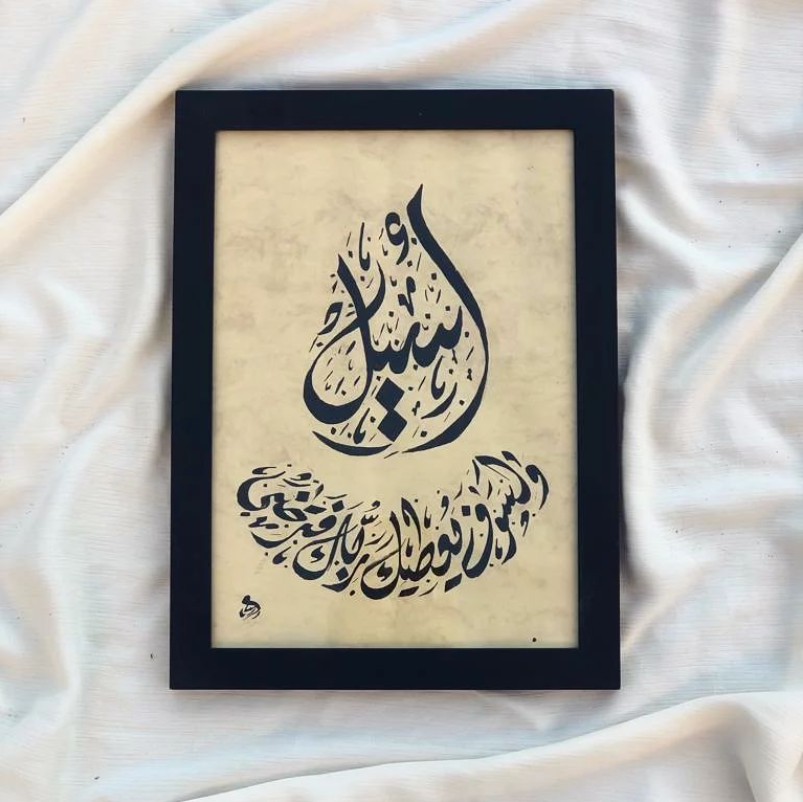 أسيل
ولسوف يعطيك ربك فترضى